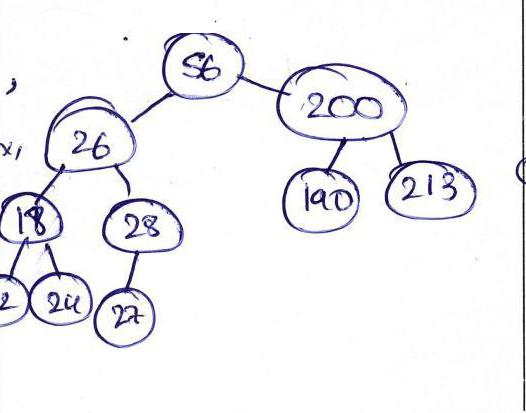 56
200
26
190
213
18
28
2
24
27